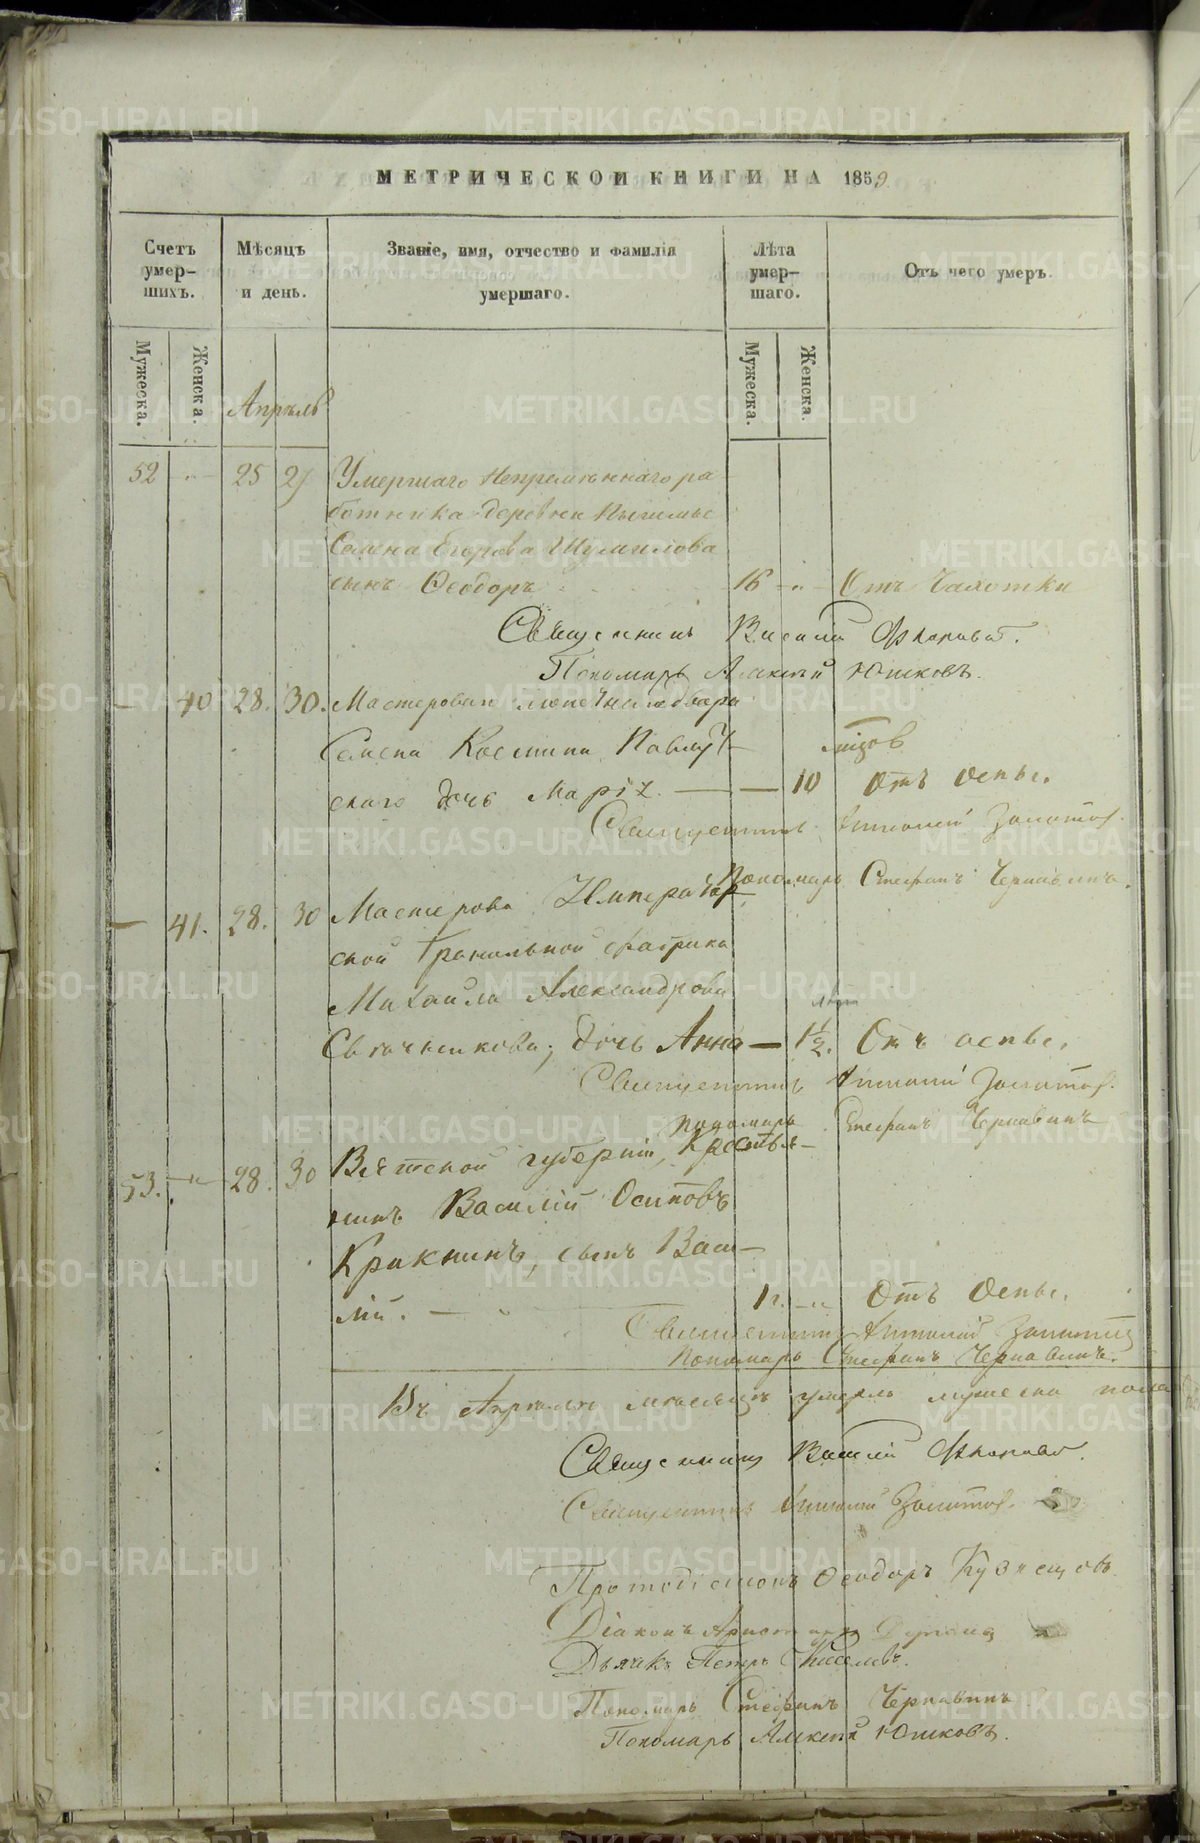 МЕТРИЧЕСКОЙ КНИГИ НА 1859
Счетъ умер-шихъ.
Мѣсяцъ и день.
Званіе, имя, отчество и фамилія умершаго.
Лѣта умер-шаго.
Отъ чего умеръ.
Мужеска.
Женска.
Мужеска.
Женска.
Апрѣль
52 25 27 Умершаго Непремѣннаго ра
ботника деревни
Семена Егорова Шумилова
сынъ Ѳеодоръ 16 Отъ Чахотки
Священникъ Василій
Пономарь Алексѣй Юшковъ.
40 28. 30. Мастероваго монетнаго двора
Семена Костина Павлу
скаго дочь Марія. — 10 Отъ Оспы.
Священникъ Золотов.
Пономарь Стефанъ Чернавинъ.
41. 28. 30 Мастерова Император
ской Гранильной фабрики
Михаила Александрова
Свѣчникова, дочь Анна — 1 1/2. Отъ оспы.
Священникъ Золотов.
Пономарь Стефанъ Чернавинъ
53. 28. 30 Вятской губерніи, Крестья-
нинъ Василій Осиповъ
сынъ Васи-
лій. 1 г. Отъ Оспы.
Священникъ Золотов
Пономарь Стефанъ Чернавинъ.
Въ Апрѣлѣ мѣсяцѣ умерло мужеска пола
Священникъ Василій
Священникъ Золотов.
Протодіаконъ Ѳеодоръ Кузнецовъ
Діаконъ
Дьячекъ Петръ Киселевъ.
Пономарь Стефанъ Чернавинъ
Пономарь Алексѣй Юшковъ.
METRIKI.GASO-URAL.RU